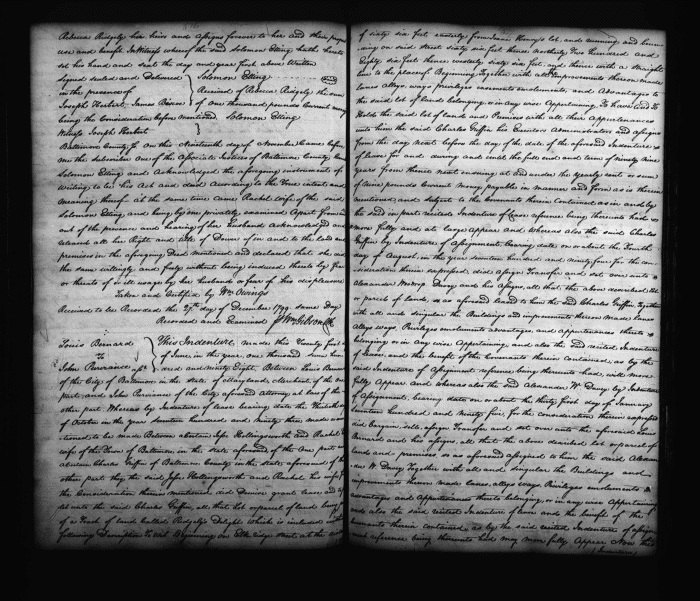 Rebecca Ridgely her heirs and assigns forever to her and their proper
use and benefit. In Witness whereof the said Solomon Etting hath hereto
set his hand and seal the day and year first above written
Signed sealed and Delivered } Solomon Etting
in the presence of } Received of Rebecca Ridgely the sum
Joseph Herbert. James Baines } of One thousand pounds Current money
being the Consideration before mentioned. Solomon Etting
Witness Joseph Herbert
Baltimore County Ss on the Nineteenth day of November Came before
me the subscriber One of the Associate Justices of Baltimore County
Solomon Etting and Acknowledged the aforegoing instrument of
Writing to be his Act and deed According to the True intent and
Meaning thereof at the same time came Rachel wife of the said
Solomon Etting and being by me privately examined Apart from
out of the presence and hearing of her husband Acknowledged and
released all her Right and title of Dower of in and to the land and
premises in the aforegoing Deed mentioned and declared that she did
the same willingly and freely without being induced thereto by fear
or threats of or ill usage by her husband or fear of his displeasure
Taken and Certified by Wm Owings
Received to be Recorded the 27th day of December 1799 same Day
Recorded and Examined Wm Gibson Clk
Louis Bernard } This Indenture, made this Twenty first
To } of June, in the year, one thousand seven hun
John Purviance } dred and ninety Eight. Between Louis Bernard
of the City of Baltimore in the state of Maryland, Merchant of the one
part, and John Purviance of the City aforesaid Attorney at law of the
other part. Whereas by Indenture of lease bearing date the
of October in the year seventeen hundred and ninety three, made
tioned to be made Between Jesse Hollingsworth and Rachel his
wife of the Town of Baltimore in the state aforesaid of the One part
Charles Guffin of Baltimore County in the state, aforesaid of the
other part, they the said Jesse Hollingsworth and Rachel his wife for
the Consideration therein mentioned did Demise grant lease and
let unto the said Charles Guffin, all that Lot or parcel of land being
of a Tract of land Called Ridgely's Delight which is included in the
following Description to wit Beginning on Elk Ridge street, at the
of sixty six feet easterly from Isaac Henry's lot, and running and boun
ding on said street sixty six feet thence northerly Two hundred and
Eighty six feet thence westerly sixty six feet, and thence with a straight
line to the place of Beginning Together with all Improvements thereon made
lanes alleys ways privileges easements enrolments, and Advantages to
the said lot of land belonging or in any wise Appertaining, To have and To
Hold the said lot of land and Premises with all their Appurtenances
unto him the said Charles Guffin his Executors Administrators and assigns
from the day next before the day of the date of the aforesaid Indenture
of lease for and during and until the full end and term of ninety nine
years from thence next ensuing, at and under the yearly rent or sum
of nine pounds Current money payable in manner and form as is therein
mentioned and subject to the Covenants therein contained as in and by
the said in part recited Indenture of Lease reference being thereunto had
more fully and at large appear and whereas also the said Charles
Guffin by Indenture of Assignment bearing date on or about the Fourth
day of August, in the year seventeen hundred and ninety four for the con
sideration therein expressed, did assign Transfer and set over unto
Alexander Davey and his Assigns, all that the above described lot
or parcel of lands, so as aforesaid leased to him the said Charles Guffin, Together
with all and singular the Buildings and improvements thereon Made lanes
alleys ways, Privileges enrolments advantages, and appurtenances thereto
belonging or in any wise Appertaining, and also the said recited Indenture
of lease, and the benefit of the Covenants therein contained, as by the
said Indenture of Assignment reference being thereunto had, will more
fully Appear And whereas also the said Alexander W. Davey by Indenture
of Assignment, bearing date on or about the thirty first day of January
seventeen hundred and Ninety five, for the consideration therein expressed
did bargain sell, assign Transfer and set over unto the aforesaid Louis
Bernard and his assigns, all that the above described lot or parcel of
lands and premises, so as aforesaid assigned to him the said Alexan
der W. Davey Together with all and singular the Buildings and
improvements thereon made, lanes, alleys ways, Privileges enrolments
advantages and Appurtenances thereto belonging, or in any wise Appertaining
and also the said recited Indenture of lease and the benefit of the
Covenants therein contained, as by the said recited Indenture of assignment
reference being thereunto had may more fully Appear Now this
Indenture